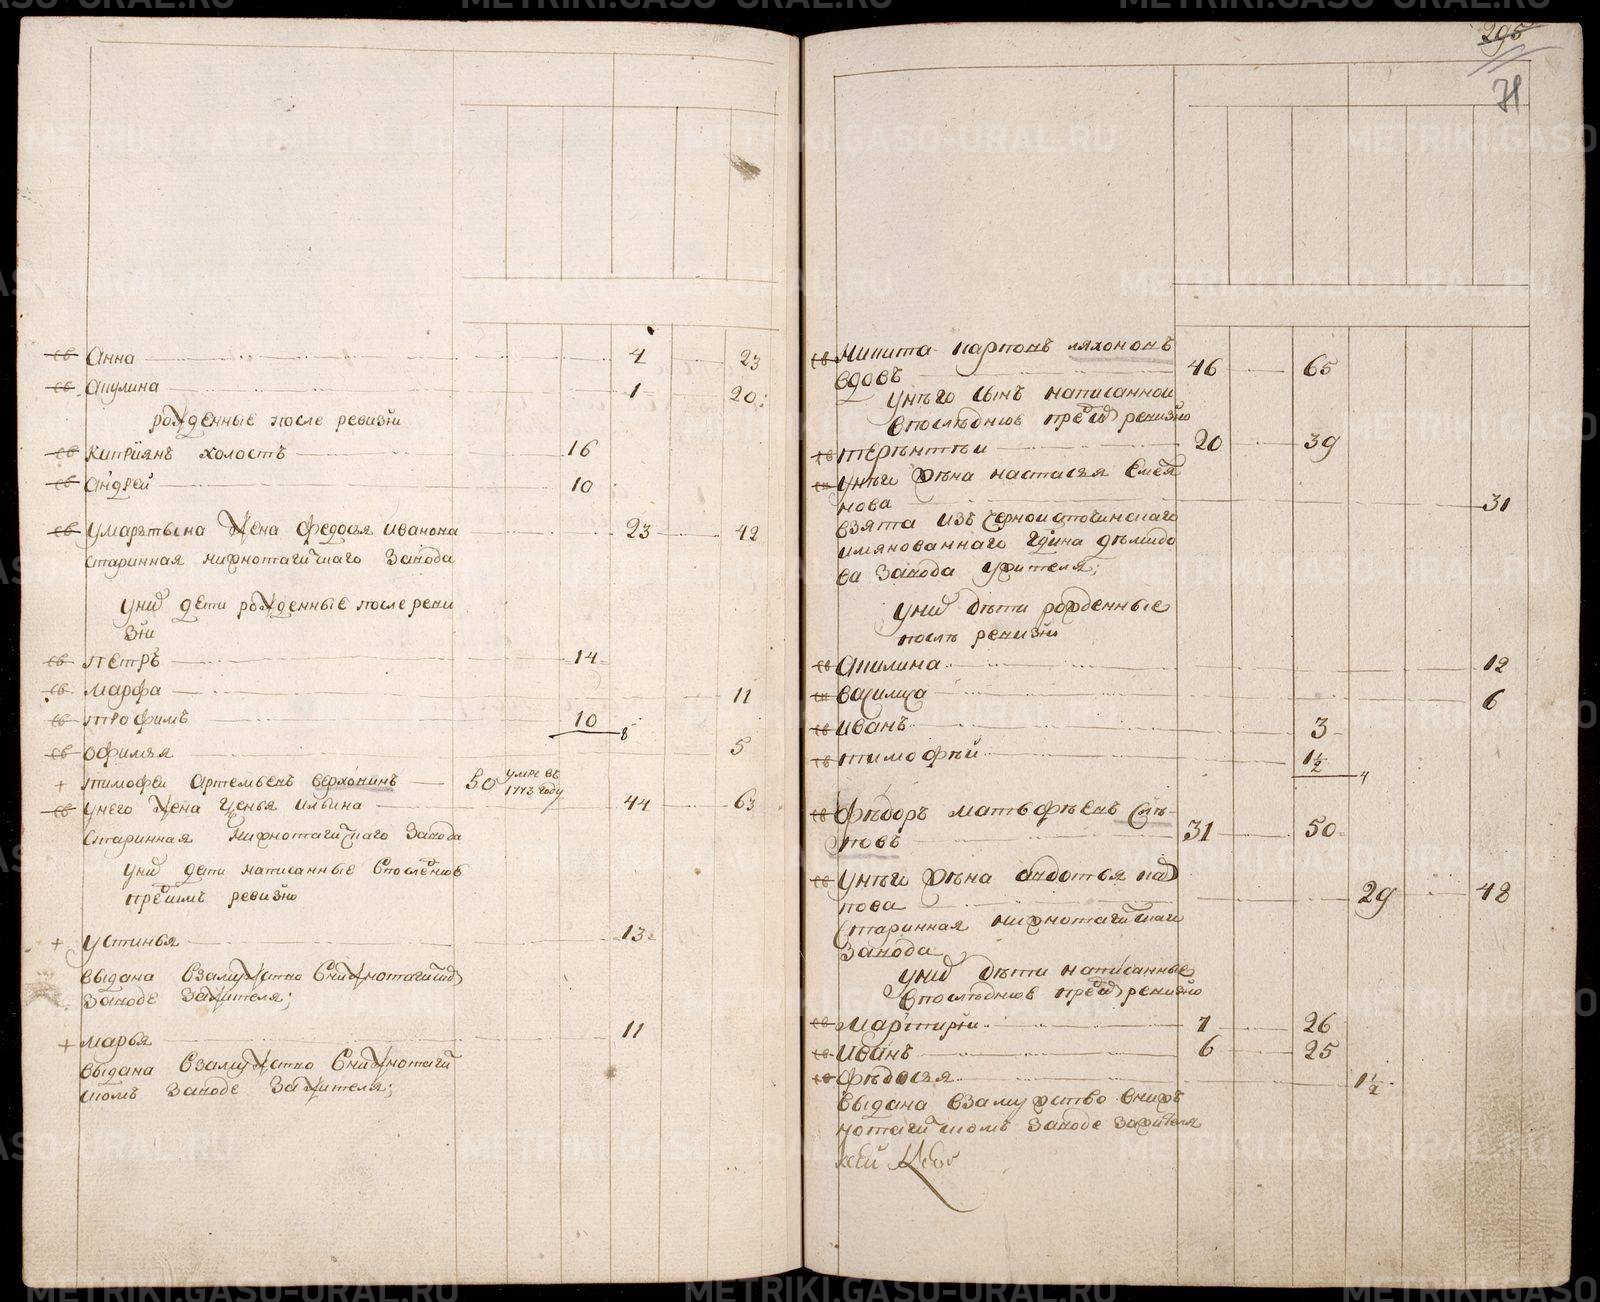 св Анна 4 23
св Акулина 1 20
рожденные после ревизiи
св Киприянъ холостъ 16
св Андрей 10
св У мартына жена Федосья Иванова 23 42
старинная нижнотагилскаго завода
у них дети рожденные после реви
зiи
св Петръ 14
св Марфа 11
св Трофимъ 10
8
св Офимья 5
+ Тимофей Артемьевъ Верхонинъ 50 умре въ
1773 году
св У него жена Ильина 44 63
старинная нижнотагилскаго завода
у них дети написанные в последнюю
пред сим ревизию
+ Устинья 13
выдана в замужство в нижнотагилском
заводе за жителя;
+ Марья 11
выдана в замужство в нижнотагил
скомъ заводе за жителя;
295
71
св Никита Карповъ Ляхоновъ
вдовъ 46 65
у него сынъ написанной
в последнюю пред сим ревизию
св Терентей 20 39
св у него жена Настасья Семея
нова 31
взята изъ черноисточинскаго
имянованнаго гдина демидо
ва завода у жителя;
у них дети рожденные
после ревизiи
св Акилина 12
св Василиса 6
св Иванъ 3
св Тимофей 1½
4
св Федоръ Матвфеевъ
31 50
св У него жена Авдотья Кар
пова 29 48
старинная нижнотагилскаго
завода
у них дети написанные
в последнюю пред сим ревизию
св Мартирiй 7 26
св Иванъ 6 25
св Федосья 1½
выдана в замужство в ниж
нотагилскомъ заводе за жителя